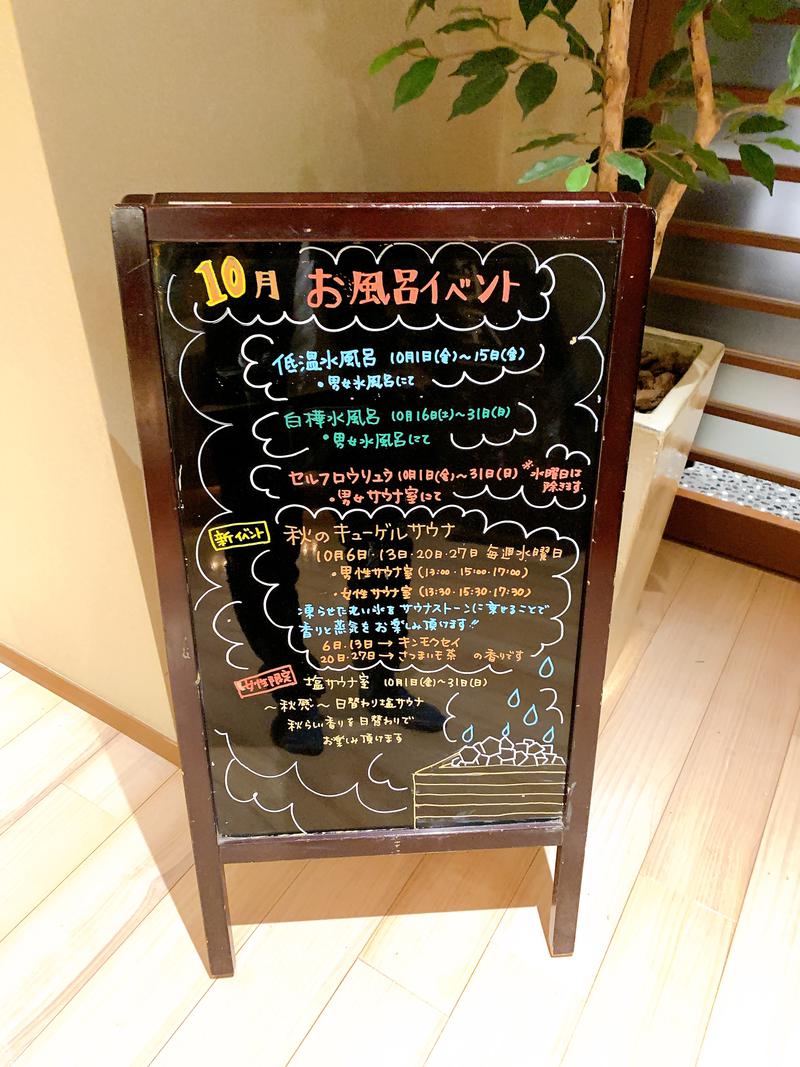 10月 お風呂イベント
低温水風呂 10月1日(金)～15日(金)
・男女水風呂にて
白樺水風呂 10月16日(土)～31日(日)
・男女水風呂にて
セルフロウリュウ 10月1日(金)～31日(日) ※水曜日は
除きます
・男女サウナ室にて
新イベント 秋のキューゲルサウナ
10月6日・13日・20日・27日 毎週水曜日
・男性サウナ室(13:00・15:00・17:00)
・女性サウナ室(13:30・15:30・17:30)
凍らせた丸い氷をサウナストーンに乗せることで
香りと蒸気をお楽しみ頂けます!!
6日・13日→キンモクセイ
20日・27日→さつまいも茶 の香りです
女性限定 塩サウナ室 10月1日(金)～31日(日)
～秋感～日替わり塩サウナ
秋らしい香りを日替わりで
お楽しみ頂けます